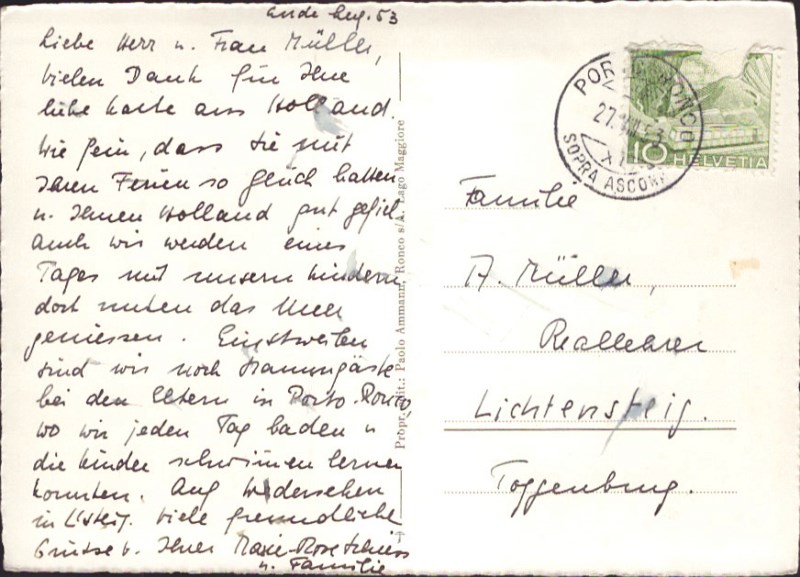 Ende Aug. 53
Liebe Herr u. Frau Müller,
vielen Dank für Ihre
liebe Karte aus Holland.
Wie fein, dass Sie mit
Ihren Ferien so glück hatten
u. Ihnen Holland gut gefiel
auch wir werden eines
Tages mit unsern Kindern
dort unten das Meer
geniessen. Einstweilen
sind wir noch Stammgäste
bei den Eltern in Porto-Ronco,
wo wir jeden Tag baden u
die Kinder schwimmen lernen
konnten. Auf Wiedersehen
in L'steig. Viele freundliche
Grüsse v. Ihrer Marie-Rose
u. Familie
Propr. edit.: Paolo Ammann, Ronco s/A. Lago Maggiore
PORTO RONCO
27.VIII.53
SOPRA ASCONA
10 HELVETIA
Familie
A. Müller,
Reallehrer
Lichtensteig.
Toggenburg.